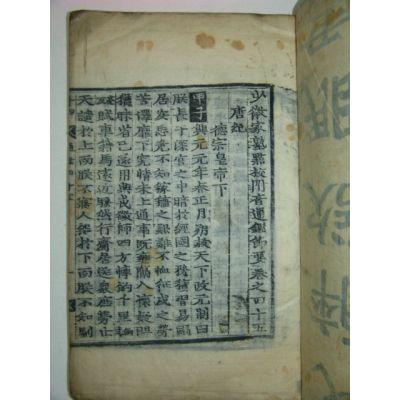 少微家塾點校附音通鑑節要卷之四十五
唐紀
德宗皇帝下
甲子興元元年春正月朔赦天下改元制曰
朕長于深宮之中暗於經國之務積習易溺
居安忘危不知稼穡之艱難不恤征戍之勞
苦澤靡下究情未上通事旣壅隔人懷疑阻
猶昧省己遂用興戎徵師四方轉餉千里
賦車籍馬遠近騷然行齎居送衆庶勞止
天譴於上而朕不寤人怨於下而朕不知馴